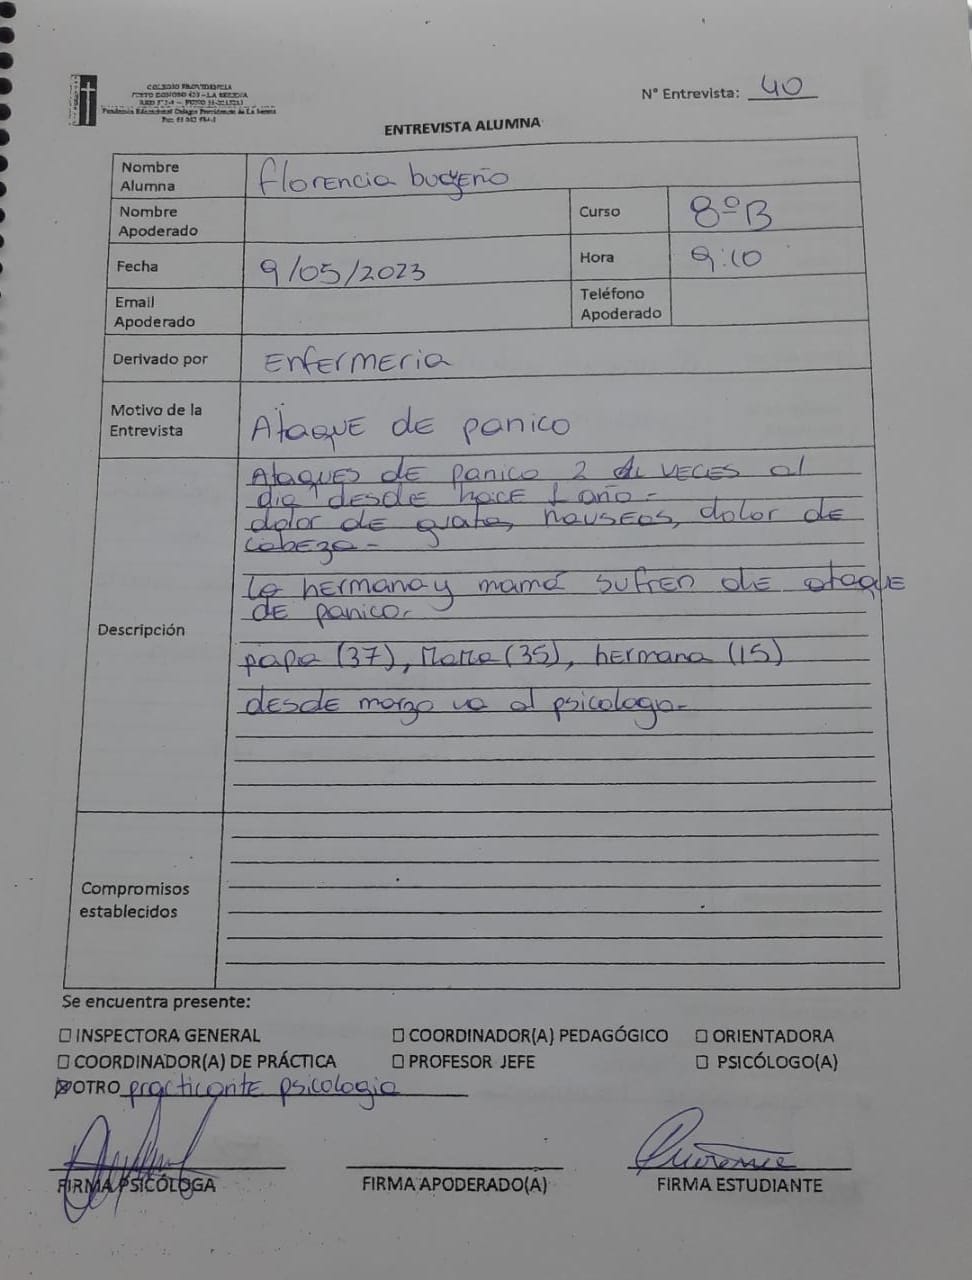 COLEGIO PROVIDENCIA
JUSTO DONOSO 420 - LA SERENA
Fundación Educacional Colegio Providencia de La Serena
N° Entrevista: 40
ENTREVISTA ALUMNA
Nombre Alumna florencia bugeño
Nombre Apoderado
Curso 8ºB
Fecha 9/05/2023
Hora 9:10
Email Apoderado
Teléfono Apoderado
Derivado por Enfermeria
Motivo de la Entrevista Ataque de panico
Descripción
Ataques de panico 2 veces al
dia desde hace 1 año-
dolor de guata, nauseas, dolor de
cabeza-
la hermana y mamá sufren de ataque
de panico.
papa (37), Mama (35), hermana (15)
desde marzo va al psicologo-
Compromisos establecidos
Se encuentra presente:
☐ INSPECTORA GENERAL ☐ COORDINADOR(A) PEDAGÓGICO ☐ ORIENTADORA
☐ COORDINADOR(A) DE PRÁCTICA ☐ PROFESOR JEFE ☐ PSICÓLOGO(A)
☒ OTRO practicante psicologia
FIRMA PSICÓLOGA FIRMA APODERADO(A) FIRMA ESTUDIANTE